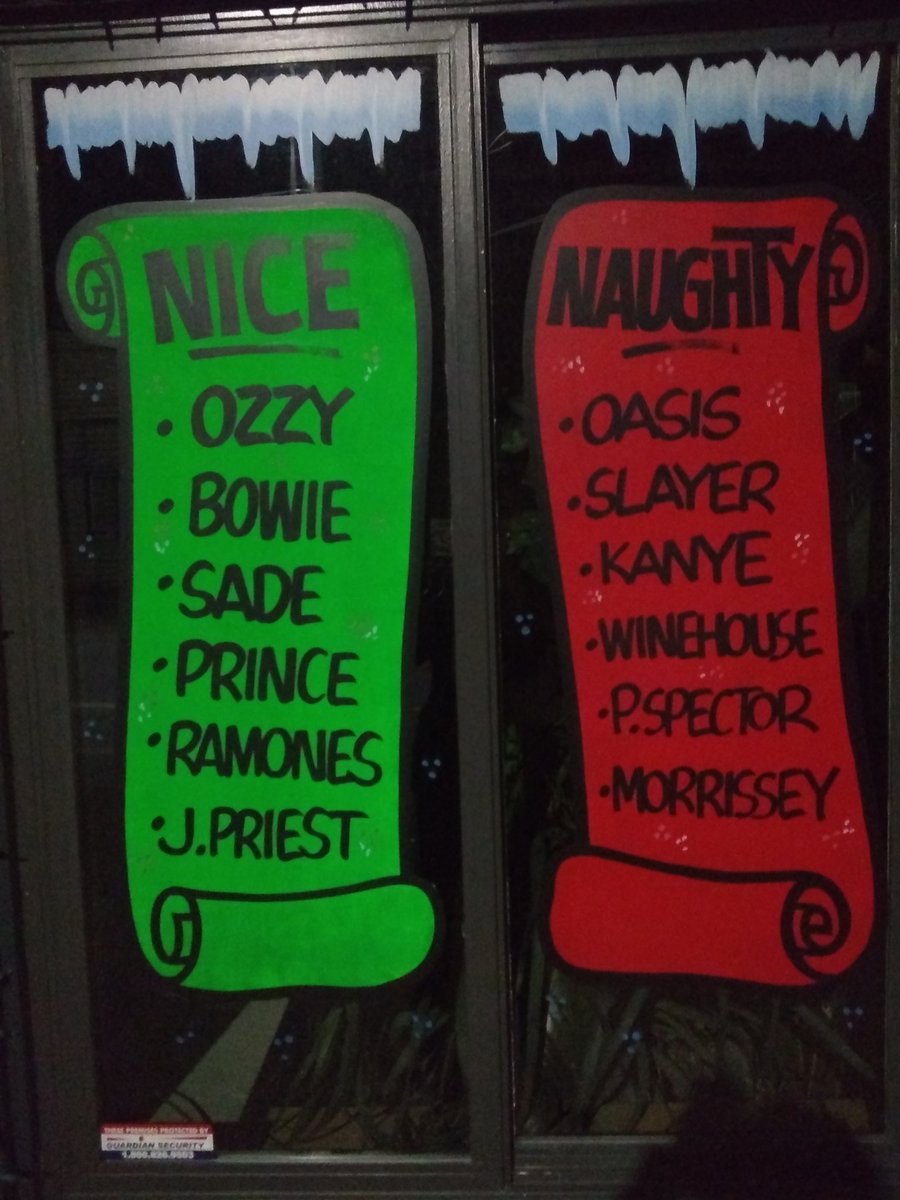 NICE
• OZZY
• BOWIE
• SADE
• PRINCE
• RAMONES
• J.PRIEST
NAUGHTY
• OASIS
• SLAYER
• KANYE
• WINEHOUSE
• P.SPECTOR
• MORRISSEY
THESE PREMISES PROTECTED BY
GUARDIAN SECURITY